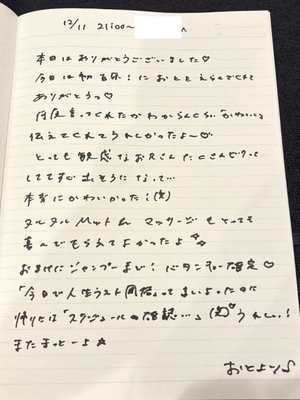 12/11 21:00〜
本日はありがとうございました♡
今日は初 に おとと えらんでくれて
ありがとうっ♡
何度言ってくれたかわからんくらい"かわいい"
伝えてくれてうれしかったよ〜♡
とっても敏感なお兄さん たくさん
してて すぐ出そうになって…
本当にかわいかった!(笑)
ヌルヌルMaットもマッサージもとっても
喜んでもらえてよかったよ
おまけにジャンプまで!
「今日で人生ラスト 」って言いよったのに
帰りには「スケジュールの確認…」(笑)♡うれしい!
またまっとーよ★
おとより♪